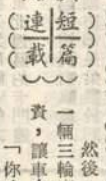 短篇
連載
然後
一輛三輪
資，讓車
「你